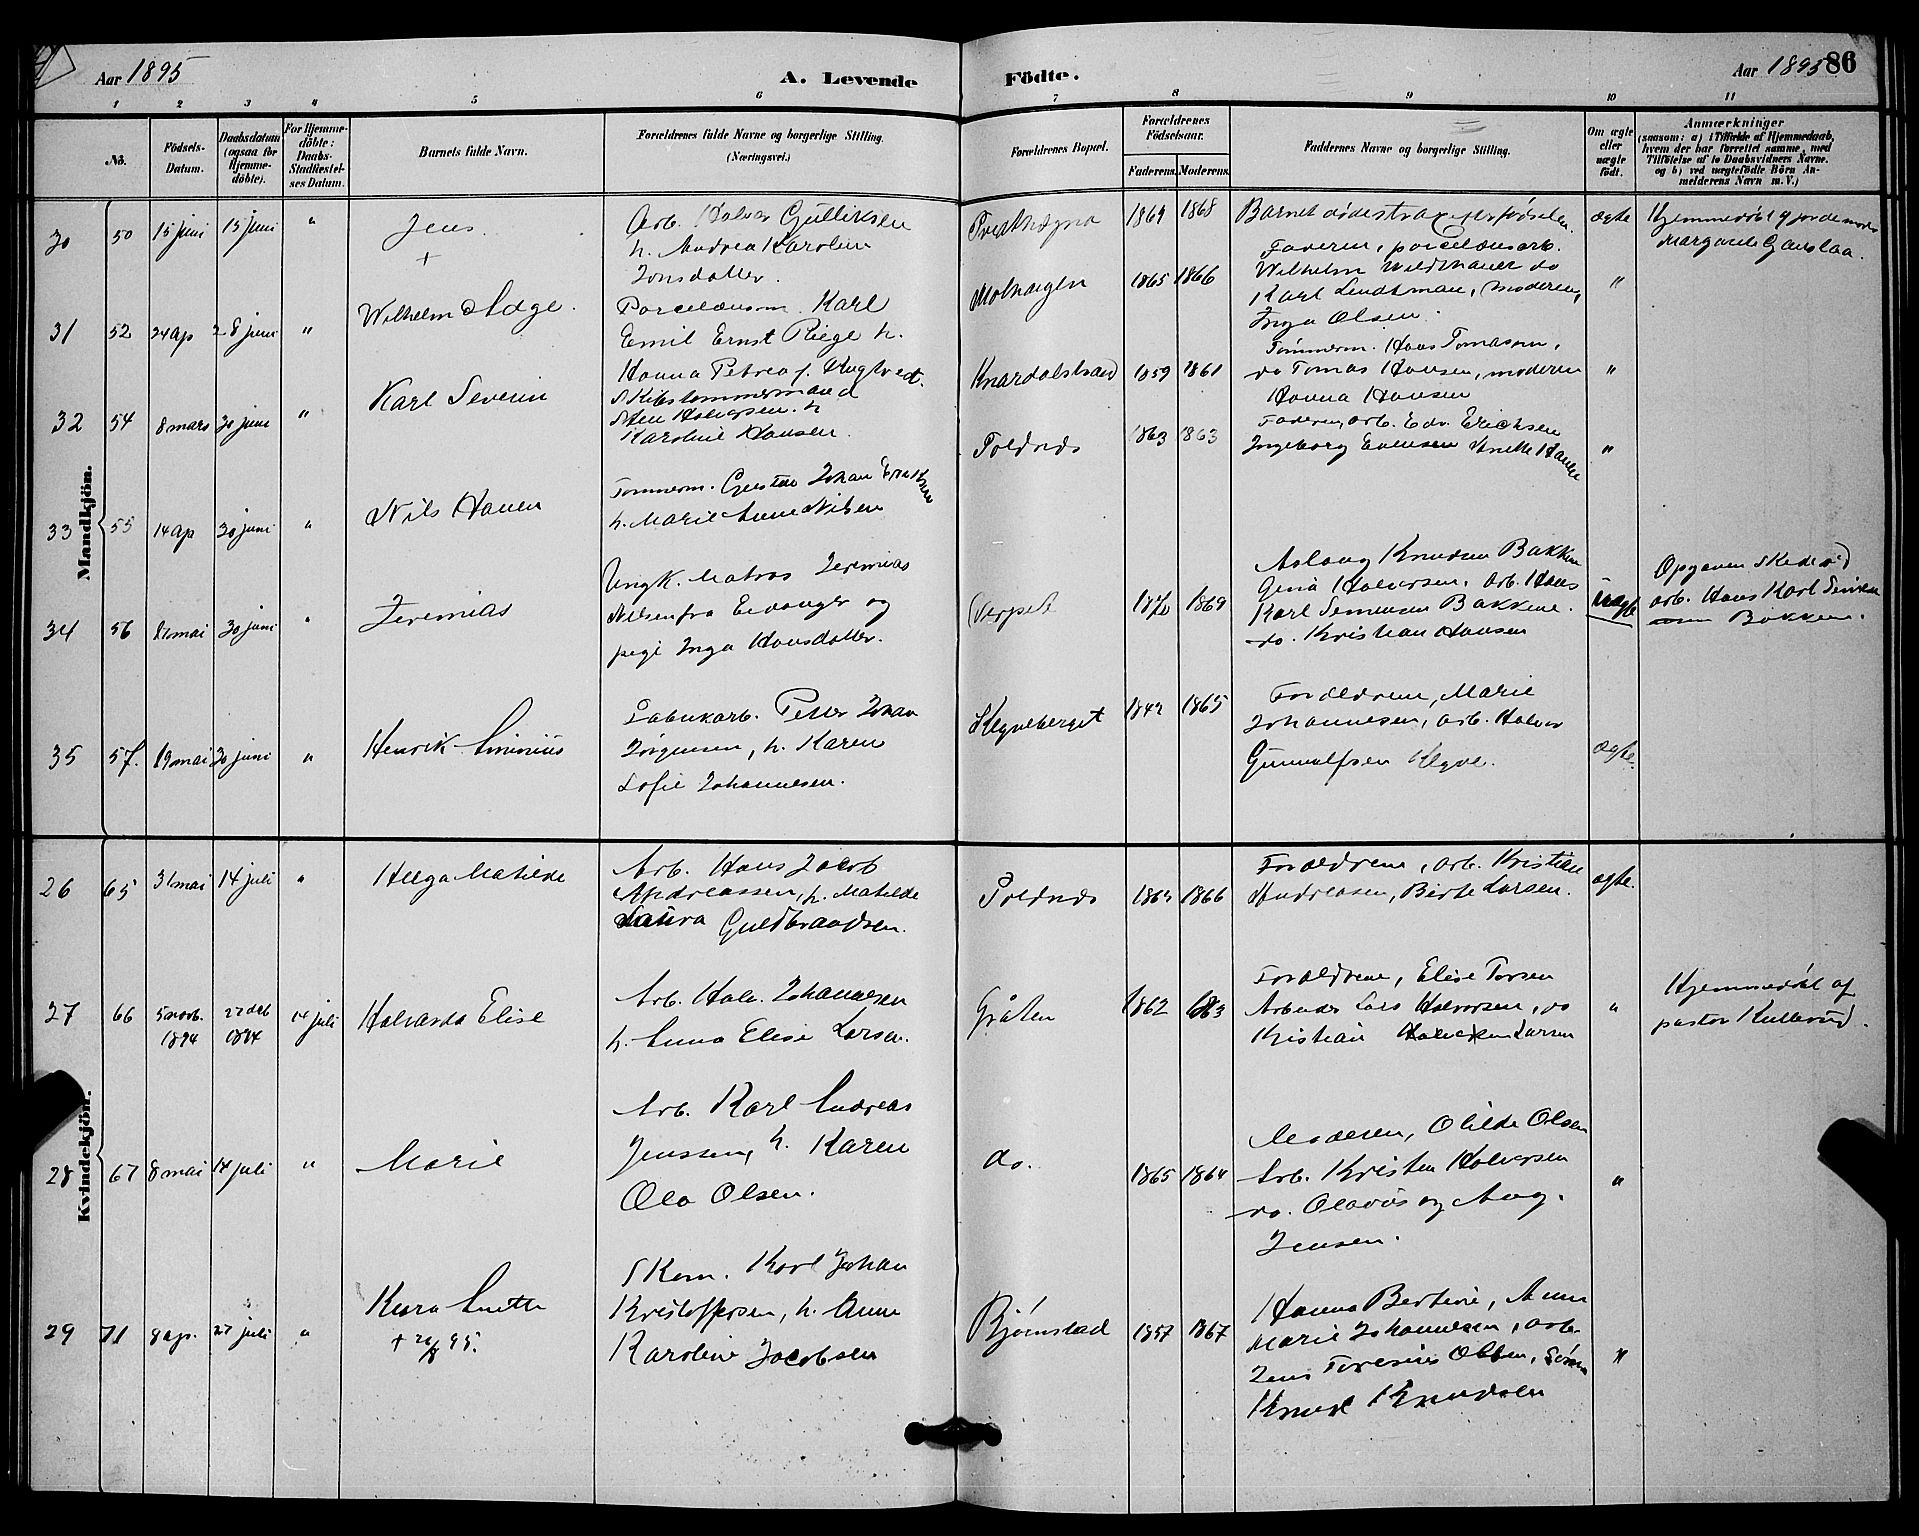 Aar 1895
A. Levende
Födte.
Aar 1895
86
1 2 3 4 5 6 7 8 9 10 11
Nô.
Födsels-
Datum.
Daabsdatum
(ogsaa for
Hjemme-
döbte).
For Hjemme-
döbte:
Daabs-
Stadfæstel-
ses Datum.
Barnets fulde Navn.
Forældrenes fulde Navne og borgerlige Stilling.
(Næringsvei.)
Forældrenes Bopæl.
Forældrenes
Födselsaar.
Faderens.
Moderens.
Faddernes Navne og borgerlige Stilling.
Om ægte
eller
uægte
født.
Anmærkninger
(saasom: a) i Tilfælde af Hjemmedaab,
hvem der har forrettet samme, med
Tilföielse af to Daabsvidners Navne,
og b) ved uægtefödte Börn An-
melderens Navn m. V.)
Mandkjön.
30 50 15 juni 15 juni "
Jens
+
Arb. Halvor Gulliksen
h. Andrea Karoline
Jonsdatter
1868
Barnet døde strax efter fødselen.
ægte
Hjemmedøbt af jordemoder
31 52 24 ap 28 juni "
Wilhelm
Porcelænsm. Karl
Emil Ernst Riege h.
Hanna Petrea f.
1865 1866
Faderen, porcelænsarb.
Wilhelm Wildhauer do
Karl Lindtman, moderen,
Inga Olsen
"
32 54 8 mars 30 juni "
Karl Severin
Skibstømmermand
Sten Halvorsen h
Karoline Hansen.
Knardalstrand
1859 1861
Tømmerm. Hans Tomasen,
do Tomas Hansen, moderen
Hanna Hansen
"
33 55 14 ap 30 juni "
Nils
Tømmerm. Gustav Johan
h. Marie Anne Nilsen
1863 1863
Faderen, arb. Edv. Erichsen
Ingeborg Evensen
"
34 56 30 juni "
Jeremias
Ungk. Matros Jeremias
Nilsen fra Eidanger og
pige Inga Hansdatter.
1870 1869
Aslaug Knudsen Bakken
Gina Halvorsen, arb. Hans
Karl Simonsen Bakkene.
do. Kristian Hansen
uægte
Opgaven skede v)
arb. Hans Karl
Bakken.
35 57. 19 mai 30 juni "
Henrik
Fabrikarb. Petter Johan
Jørgensen, h. Karen
Sofie Johannesen.
1865
Forældrene, Marie
Johannesen, arb. Halvor
Gunnulfsen
ægte.
Kvindekjön.
26 65 31 mai 14 juli "
Helga Matilde
Arb. Hans Jacob
Andreassen, h. Matilde
Laura Guldbrandsen.
1866
Forældrene, arb. Kristian
Andreasen, Birte Larsen.
ægte.
27 66 5 novb.
1894
1894
14 juli
Halvarda Elise
Arb. Halv. Johannesen
h. Anna Elise Larsen.
Gråten
1862 1863
Forældrene, Elise
Arbeider Lars Halvorsen, do
Kristian Larsen
"
Hjemmedøbt af
pastor
28 67 8 mai 14 juli "
Marie
Arb. Karl Andreas
Jenssen, h. Karen
Olea Olsen.
do.
1865 1864
Moderen, Olilde Olsen
Arb. Kristen Halvorsen
do. Olavus og Aug.
Jensen.
"
29 71 8 ap. 27 juli "
Skom. Karl Johan
Kristoffersen, h. Anne
Karoline Jacobsen
Bjørnstad
1857 1867
Hanna Bertine, Anne
Marie Johannesen, arb.
Jens Olsen,
Knut Knudsen
"